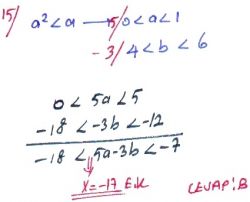 15/ a² < a → 5/ 0 < a < 1
-3/ 4 < b < 6
0 < 5a < 5
-18 < -3b < -12
-18 < 5a-3b < -7
x = -17 E.k
CEVAP: B